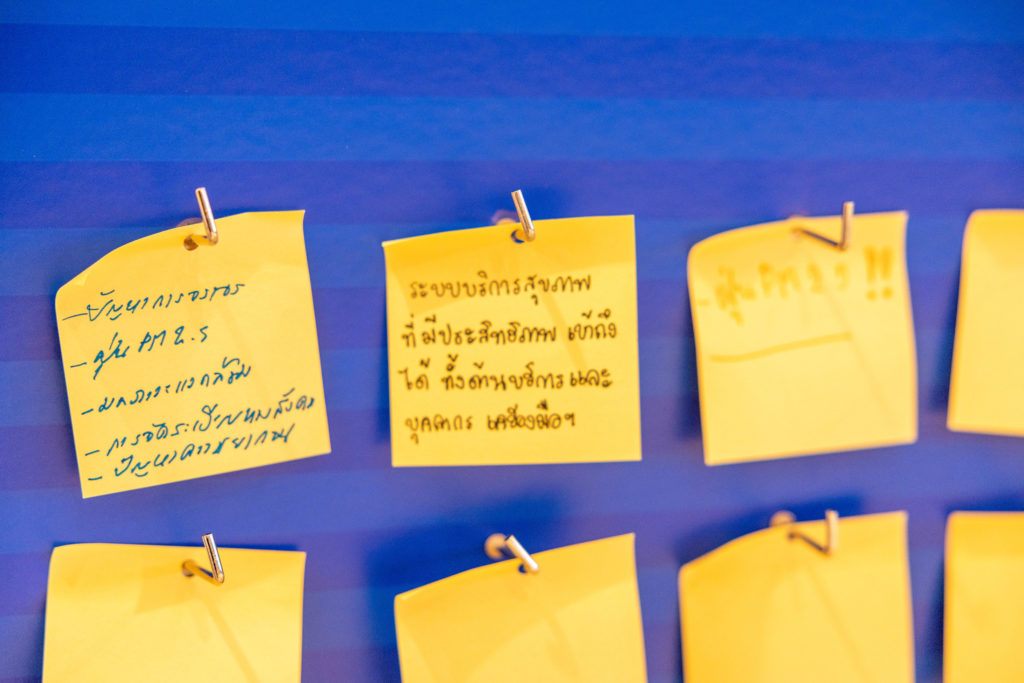 - ปัญหาการจราจร
- ฝุ่น PM 2.5
- มลภาวะแวดล้อม
- การจัดระเบียบทางสังคม
- ปัญหาความยากจน
ระบบบริการสุขภาพ
ที่มีประสิทธิภาพ เข้าถึง
ได้ ทั้งด้านบริการและ
บุคลากร เครื่องมือฯ
- ฝุ่น PM 2.5 !!!